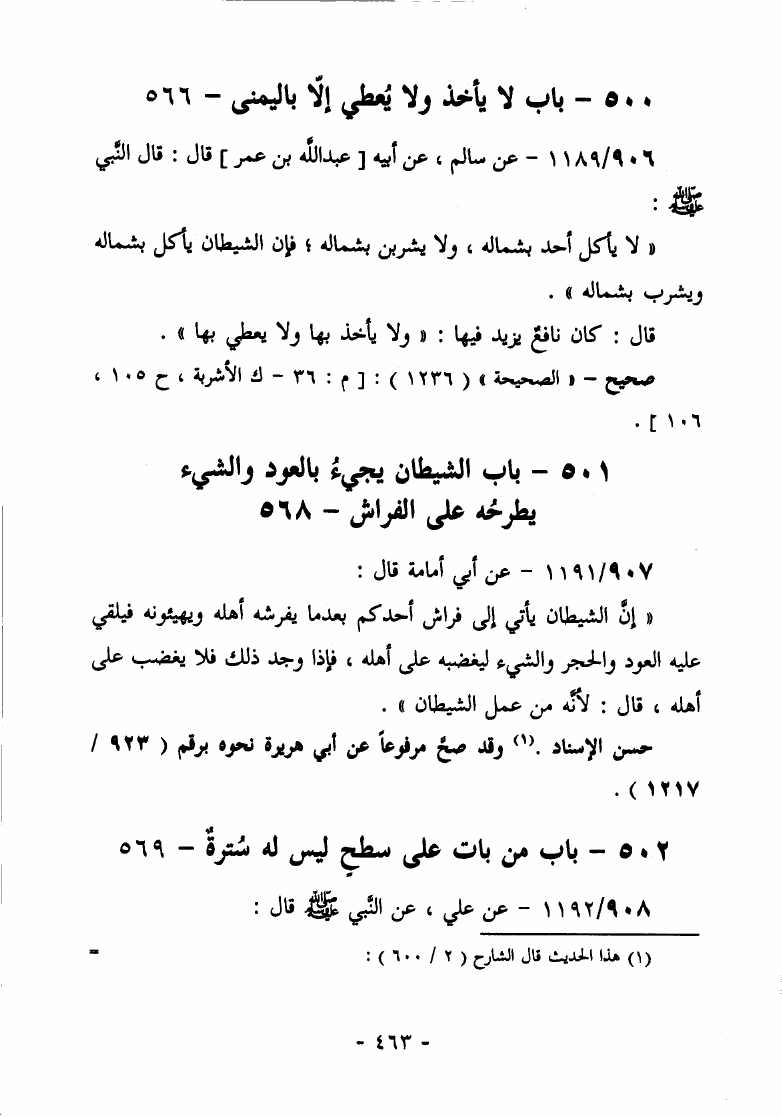 ٥٠٠ – باب لا يأخذ ولا يُعطي إلّا باليمنى – ٥٦٦
١١٨٩/٩٠٦ – عن سالم ، عن أبيه [ عبدالله بن عمر ] قال : قال النَّبي
ﷺ :
« لا يأكل أحد بشماله ، ولا يشربن بشماله ؛ فإن الشيطان يأكل بشماله
ويشرب بشماله » .
قال : كان نافعٌ يزيد فيها : « ولا يأخذ بها ولا يعطي بها » .
صحيح – « الصحيحة » ( ١٢٣٦ ) : [ م : ٣٦ – ك الأشربة ، ح ١٠٥ ،
١٠٦ ] .
٥٠١ – باب الشيطان يجيءُ بالعود والشيء
يطرحُه على الفراش – ٥٦٨
١١٩١/٩٠٧ – عن أبي أمامة قال :
« إنَّ الشيطان يأتي إلى فراش أحدكم بعدما يفرشه أهله ويهيئونه فيلقي
عليه العود والحجر والشيء ليغضبه على أهله ، فإذا وجد ذلك فلا يغضب على
أهله ، قال : لأنَّه من عمل الشيطان » .
حسن الإسناد .(١) وقد صحَّ مرفوعاً عن أبي هريرة نحوه برقم ( ٩٢٣ /
١٢١٧ ) .
٥٠٢ – باب من بات على سطحٍ ليس له سُترةٌ – ٥٦٩
١١٩٢/٩٠٨ – عن علي ، عن النَّبي ﷺ قال :
(١) هذا الحديث قال الشارح ( ٢ / ٦٠٠ ) : =
- ٤٦٣ -